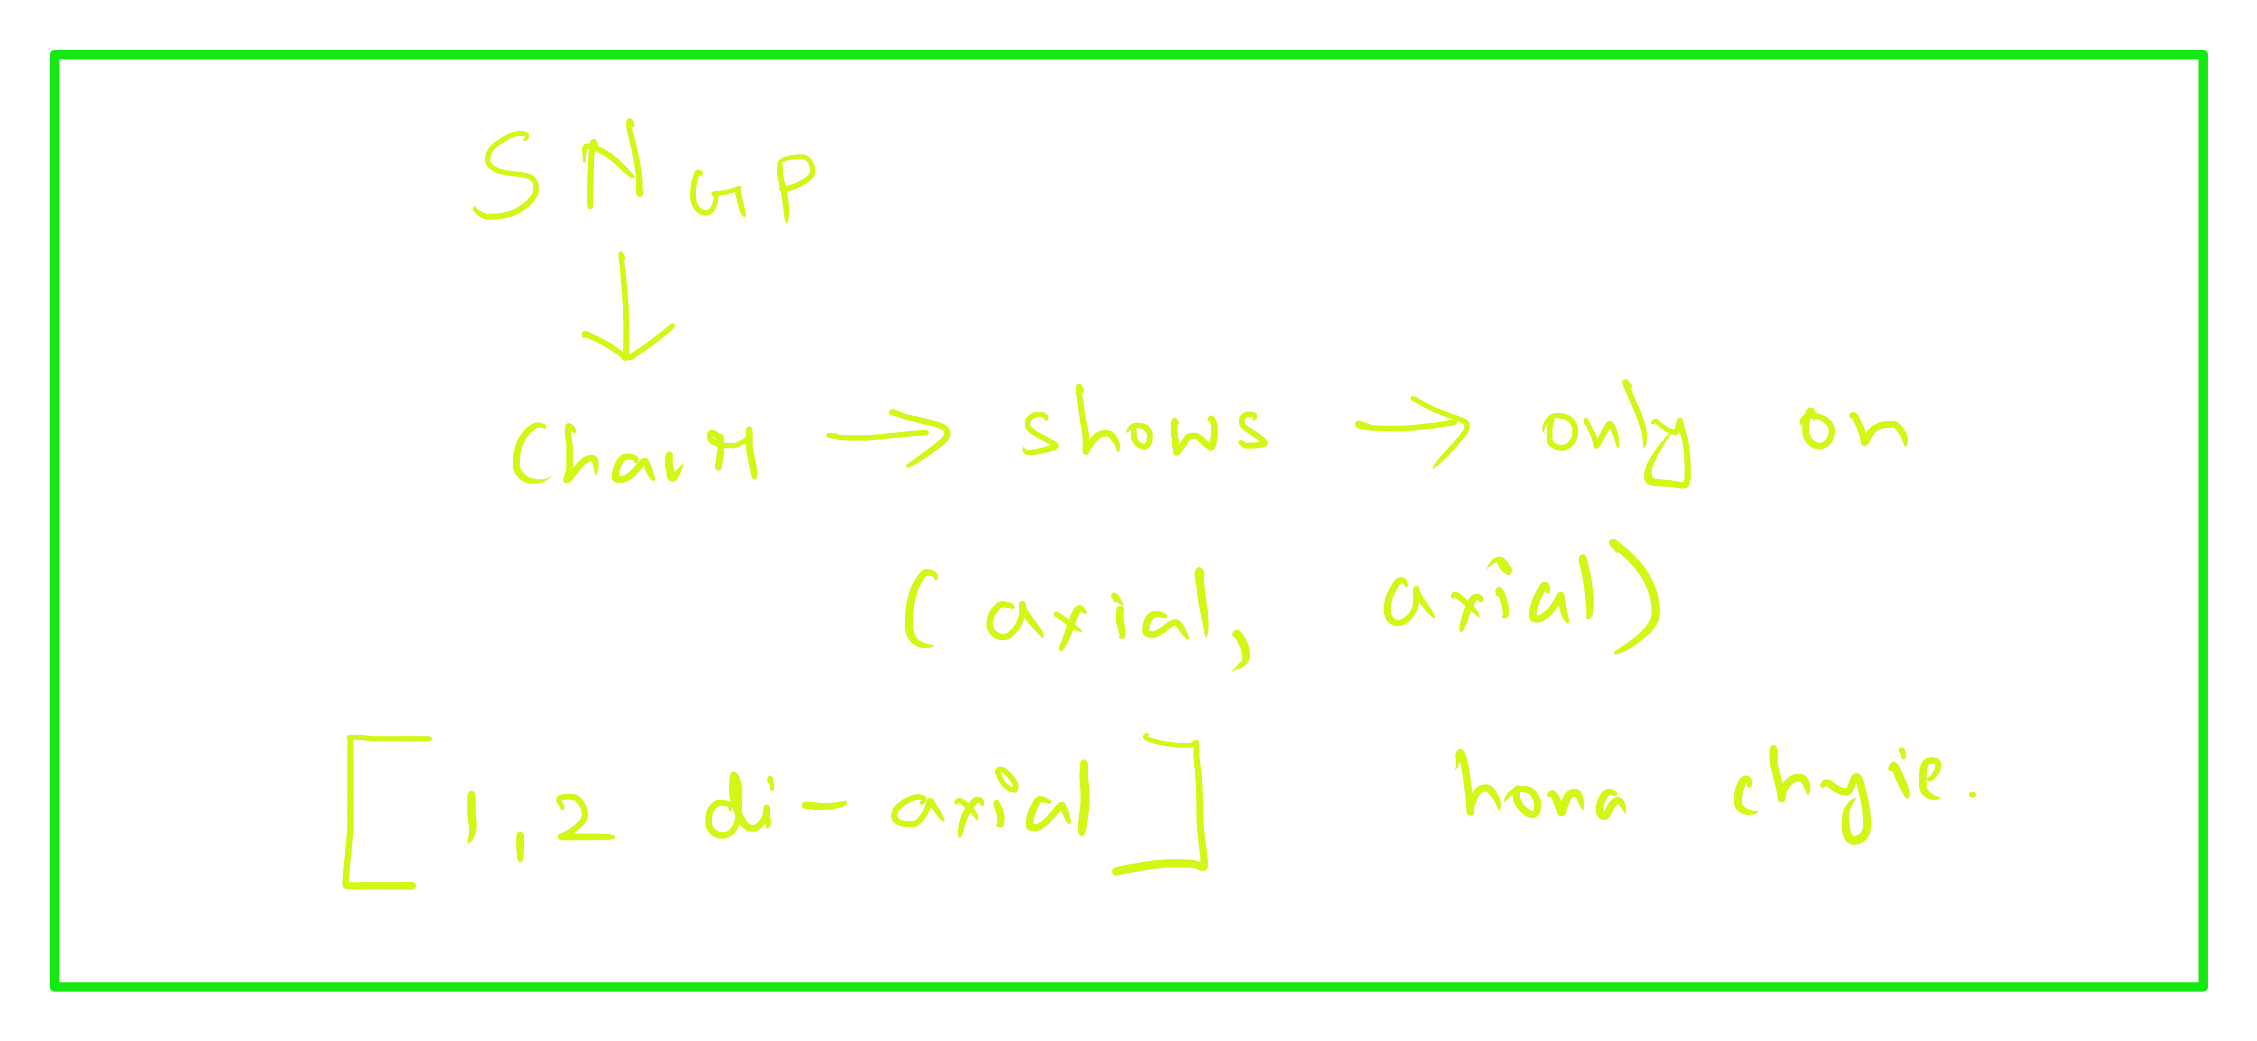 SN GP
↓
Chair → shows → only on
(axial, axial)
[1,2 di-axial] hona chyie.